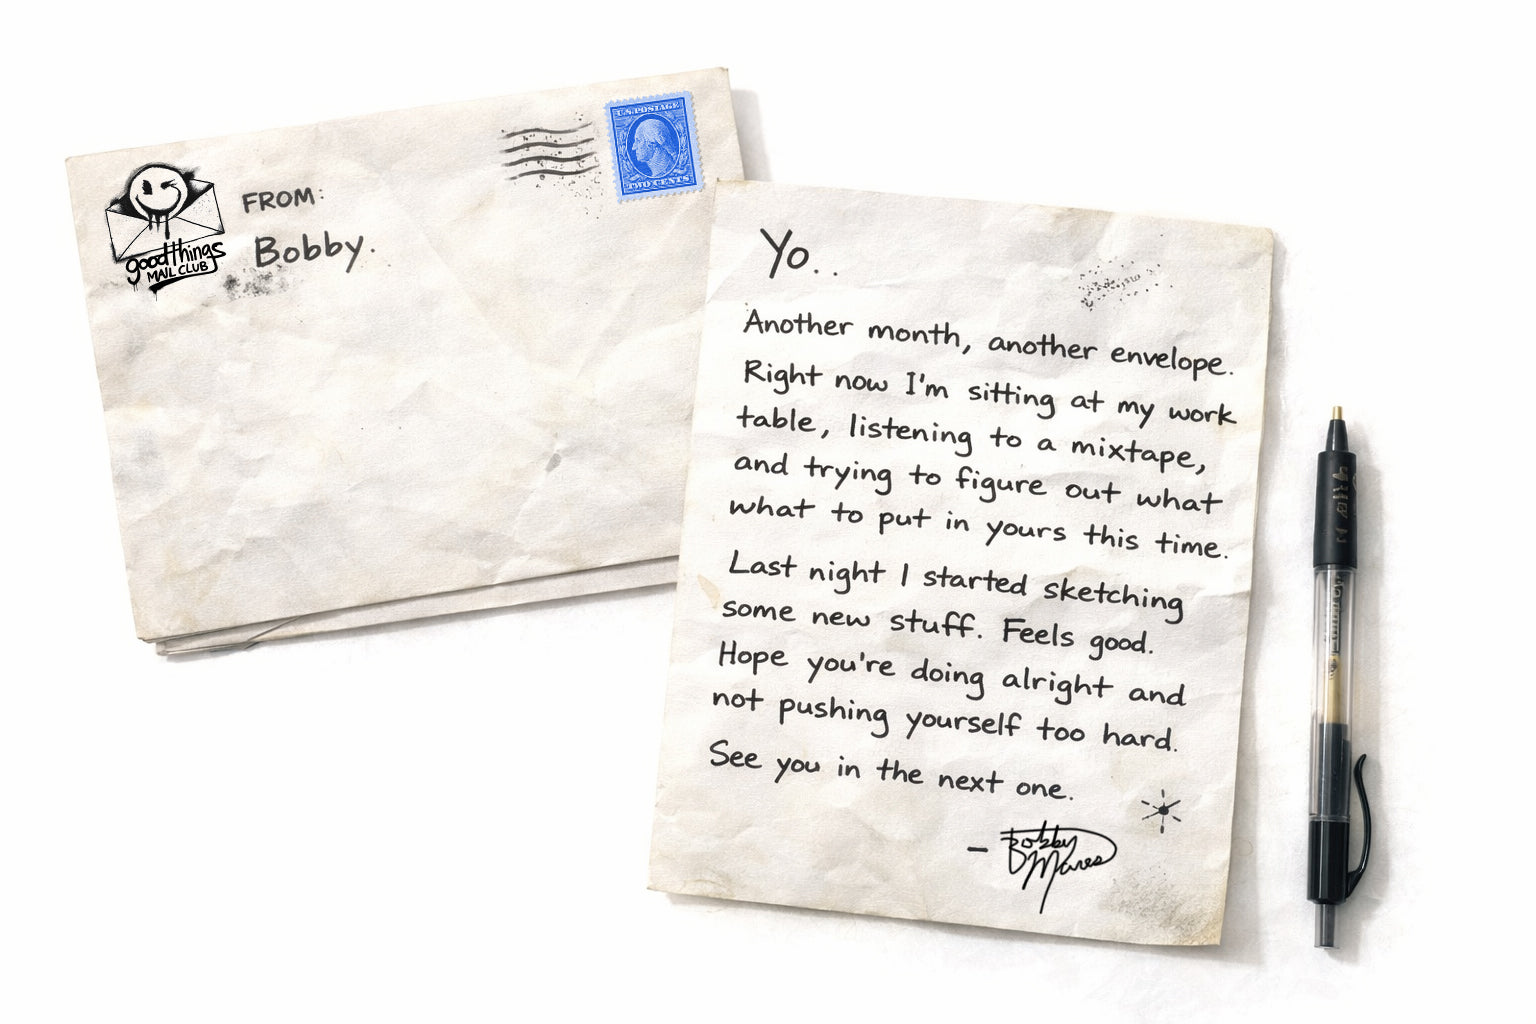 good things
MAIL CLUB
FROM:
Bobby.
U.S. POSTAGE
TWO CENTS
Yo..
Another month, another envelope.
Right now I'm sitting at my work
table, listening to a mixtape,
and trying to figure out what
what to put in yours this time.
Last night I started sketching
some new stuff. Feels good.
Hope you're doing alright and
not pushing yourself too hard.
See you in the next one.
- Bobby
Mares